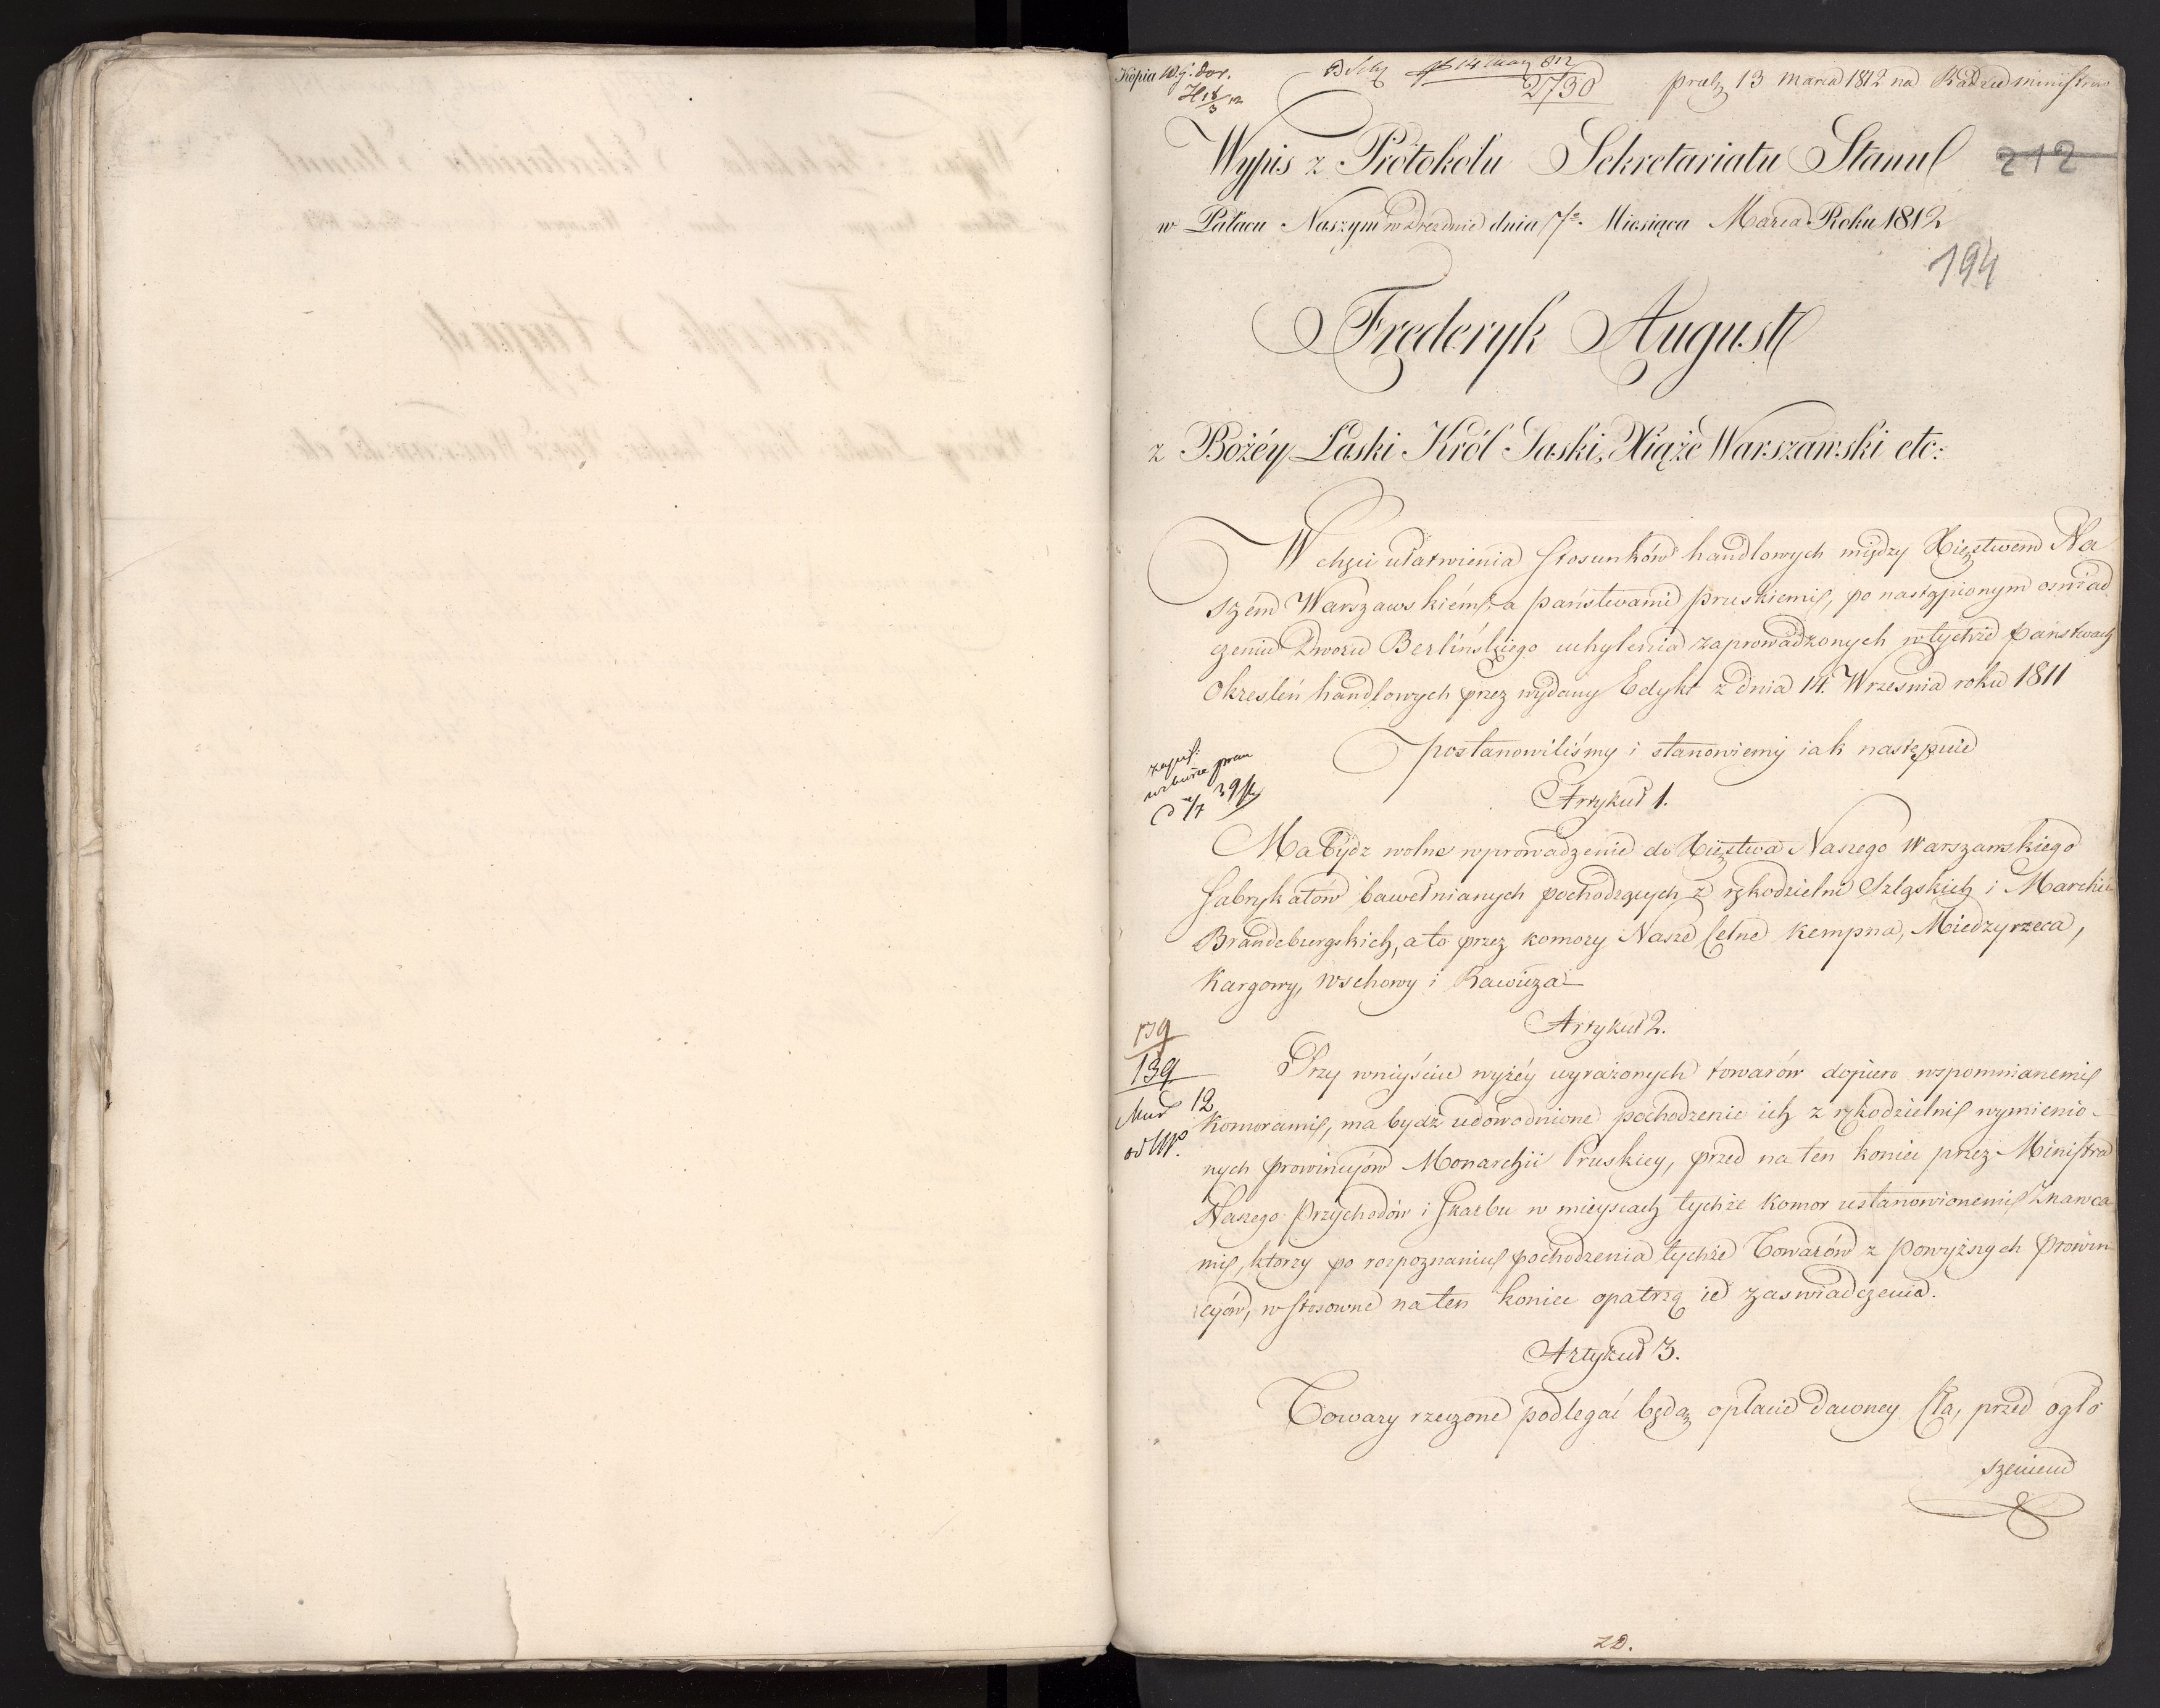 Kopia
2730
præs. 13 Marca 1812 na Radzie Ministrów
Wypis z Protokołu Sekretariatu Stanu
212
w Pałacu Naszym w Dreznie dnia 7o. Miesiąca Marca Roku 1812
194
Frederyk August
z Bożéy Łaski Król Saski, Xiąże Warszawski etc:
W chęci ułatwienia stosunków handlowych między Xięstwem Na
szém Warszawskiém, a państwami pruskiemi, po nastąpionym oświad
czeniu Dworu Berlińskiego uchylenia zaprowadzonych w tychże państwach
Określeń handlowych przez wydany Edykt z dnia 14. Września roku 1811
postanowiliśmy i stanowiemy iak następuie
Artykuł 1.
Ma bydz wolne wprowadzenie do Xięstwa Naszego Warszawskiego
fabrykatów bawełnianych pochodzących z rękodzielni Szląskich i Marchii
Brandeburgskich, a to przez komory Nasze Celne Kempna, Miedzyrzeca,
Kargowy, Wschowy i Rawicza
Artykuł 2.
139
139
Przy wniyściu wyżéy wyrażonych towarów dopiero wspomnianemi
12
Komorami, ma bydź udowodnione pochodzenie ich z rękodzielni wymienio-
nych prowincyów Monarchii Pruskiey, przed na ten koniec przez Ministra
Naszego Przychodów i Skarbu w mieyscach tychże Komor ustanowionemi Znawca
mi, ktorzy po rozpoznaniu pochodzenia tychże Towarów z powyższych Prowin
cyów, w stosowne na ten koniec opatrzą ie zaswiadczenia.
Artykuł 3.
Towary rzeczone podlegać będą opłacie dawney Cła, przed ogło
szeniem